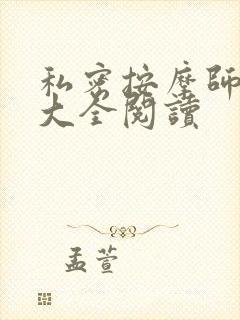 私密按摩師
大全閱讀
孟萱